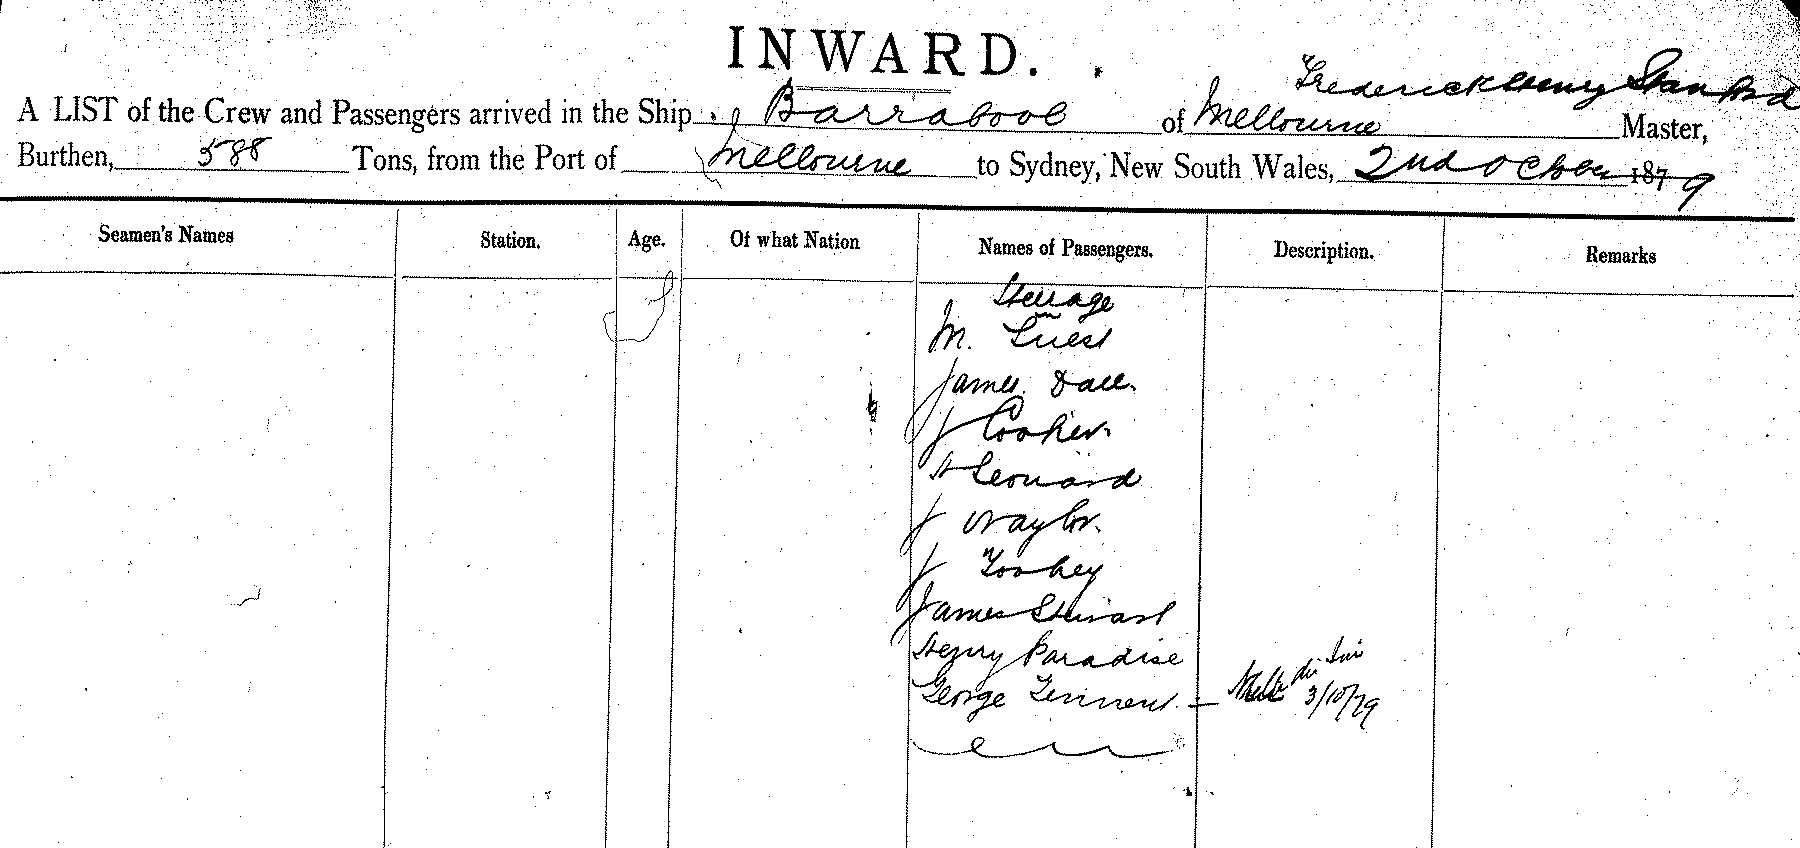 INWARD.
Frederick Henry
A LIST of the Crew and Passengers arrived in the Ship Barrabool of Melbourne Master,
Burthen, 588 Tons, from the Port of Melbourne to Sydney, New South Wales, 2nd October 1879
Seamen's Names Station. Age. Of what Nation Names of Passengers. Description. Remarks
Steerage
M. Guest
James Dale
J Cooker
H Leonard
J Naylor
J Toohey
James Stewart
Henry Paradise
George Tennent
3/10/79